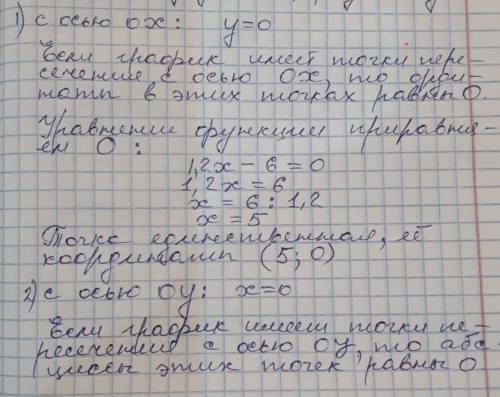 1) с осью ОХ: у=0
Если график имеет точки пере-
сечение с осью ОХ, то орди-
наты в этих точках равны 0.
Уравнение функции приравня-
ем 0:
1,2х - 6 = 0
1,2х = 6
х = 6 : 1,2
х = 5
Точка единственная, её
координаты (5; 0)
2) с осью ОУ: х=0
Если график имеет точки пе-
ресечения с осью ОУ, то абс-
циссы этих точек равны 0